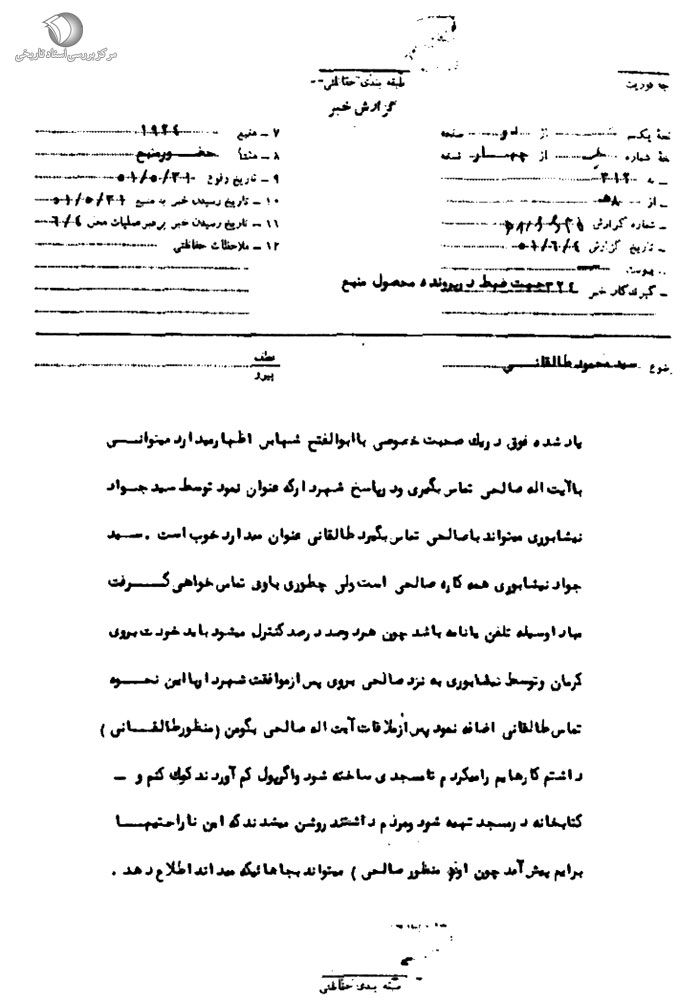 مرکز بررسی اسناد تاریخی
طبقه بندی حفاظتی
گزارش خبر
۷ ـ منبع ۱۹۲۴
۸ ـ منشأ حضور منبع
۹ ـ تاریخ وقوع ۵۱/۵/۳۱
۱۰ ـ تاریخ رسیدن خبر به منبع ۵۱/۵/۳۱
۱۱ ـ تاریخ رسیدن خبر برهبر عملیات محل ۶/۴
۱۲ ـ ملاحظات حفاظتی
از دو صفحه
از چهار نسخه
ـ به ۳۱۲
ـ از ۸ھ
ـ شماره گزارش
ـ تاریخ گزارش ۵۱/۶/۴
پیوست
ـ گیرندگان خبر ۳۲۴ جهت ضبط در پرونده محصول منبع
سید محمود طالقانی
عطف
پیرو
یاد شده فوق در یك صحبت خصوصی با ابوالفتح اظهار میدارد میتوانی
با آیت اله صالحی تماس بگیری و در پاسخ شهردار که عنوان نمود توسط سید جواد
نیشابوری میتواند با صالحی تماس بگیرد طالقانی عنوان میدارد خوب است . سید
جواد نیشابوری همه کاره صالحی است ولی چطوری با وی تماس خواهی گرفت
مبادا وسیله تلفن یا نامه باشد چون هر دو صد در صد کنترل میشود باید خودت بروی
کرمان و توسط نیشابوری به نزد صالحی بروی پس از موافقت شهردار با این نحوه
تماس طالقانی اضافه نمود پس از ملاقات آیت اله صالحی بگو من (منظور طالقانی )
داشتم کارهایم را میکردم تا مسجدی ساخته شود و اگر پول کم آوردند کوك کنم و ـ
کتابخانه در مسجد تهیه شود و مردم داشتند روشن میشدند که این ناراحتیها
برایم پیش آمد چون او ( منظور صالحی ) میتواند بجاهائیکه میداند اطلاع دهد .
طبقه بندی حفاظتی